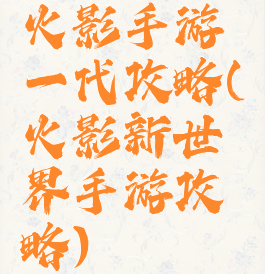 火影手游
一代攻略(
火影新世
界手游攻
略)